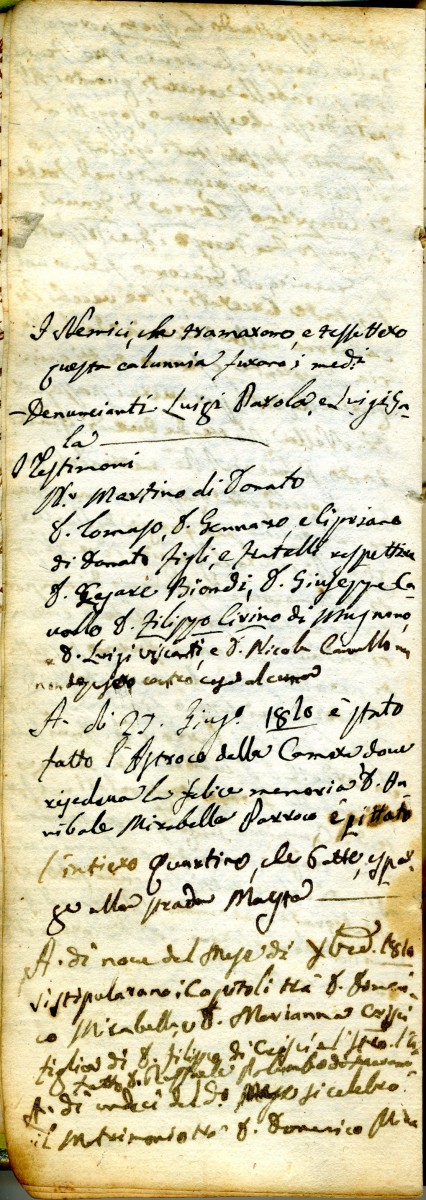 I Nemici, che tramarono, e tessettero
questa calunnia furono i med.i
Denuncianti Luigi Parola, e Luigi Sa-
la
I Testimoni
Martino di Donato
D. Tomaso, D. Gennaro, e Cipriano
di Donato Figli, e Fratelli respettive
D. Cesare Biondi, D. Giuseppe Ca-
vallo D. Filippo Civino di Mugnano,
e D. Luigi Visconti, e D. Nicola Cavallo
non depose contro cosa alcuna
A dì 27. Giug.o 1810 è stato
fatto l'Astroco della Camera dove
risedeva la felice memoria D. An
nibale Mirabella Parroco è pittato
l'intiero Quartino, che batte, e spor-
ge alla strada Maestra
A dì nove del Mese di Xbre. 1810
si stipularano i Capitoli trà D. Domeni-
co Mirabella, e D. Marianna Crisci
figlia di D. Filippo di Crisci
D. Raffaele Palumbo
A dì undeci del do. Mese si celebrò
il Matrimonio trà D. Domenico Mira